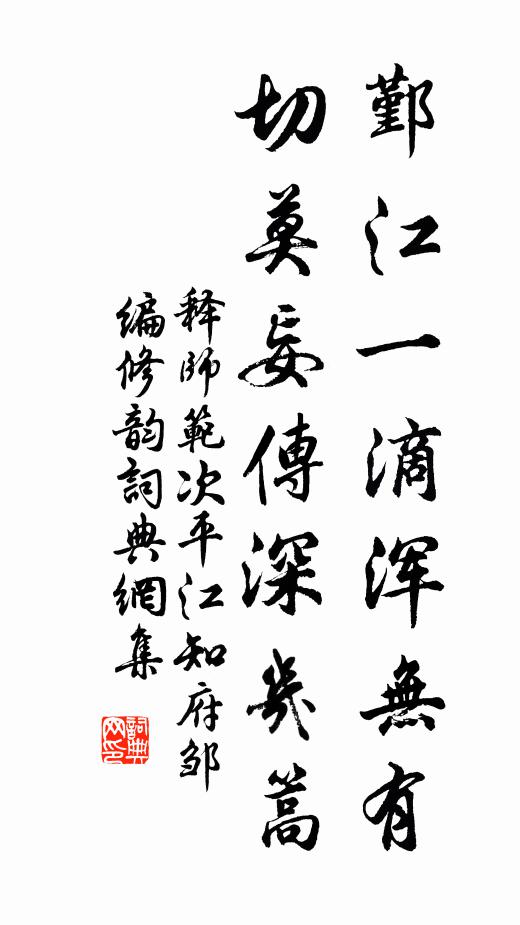 鄞江一滴浑無有
切莫妄傳深幾篙
释師範次平江知府邹
编修韵詞典網集
詞典網印